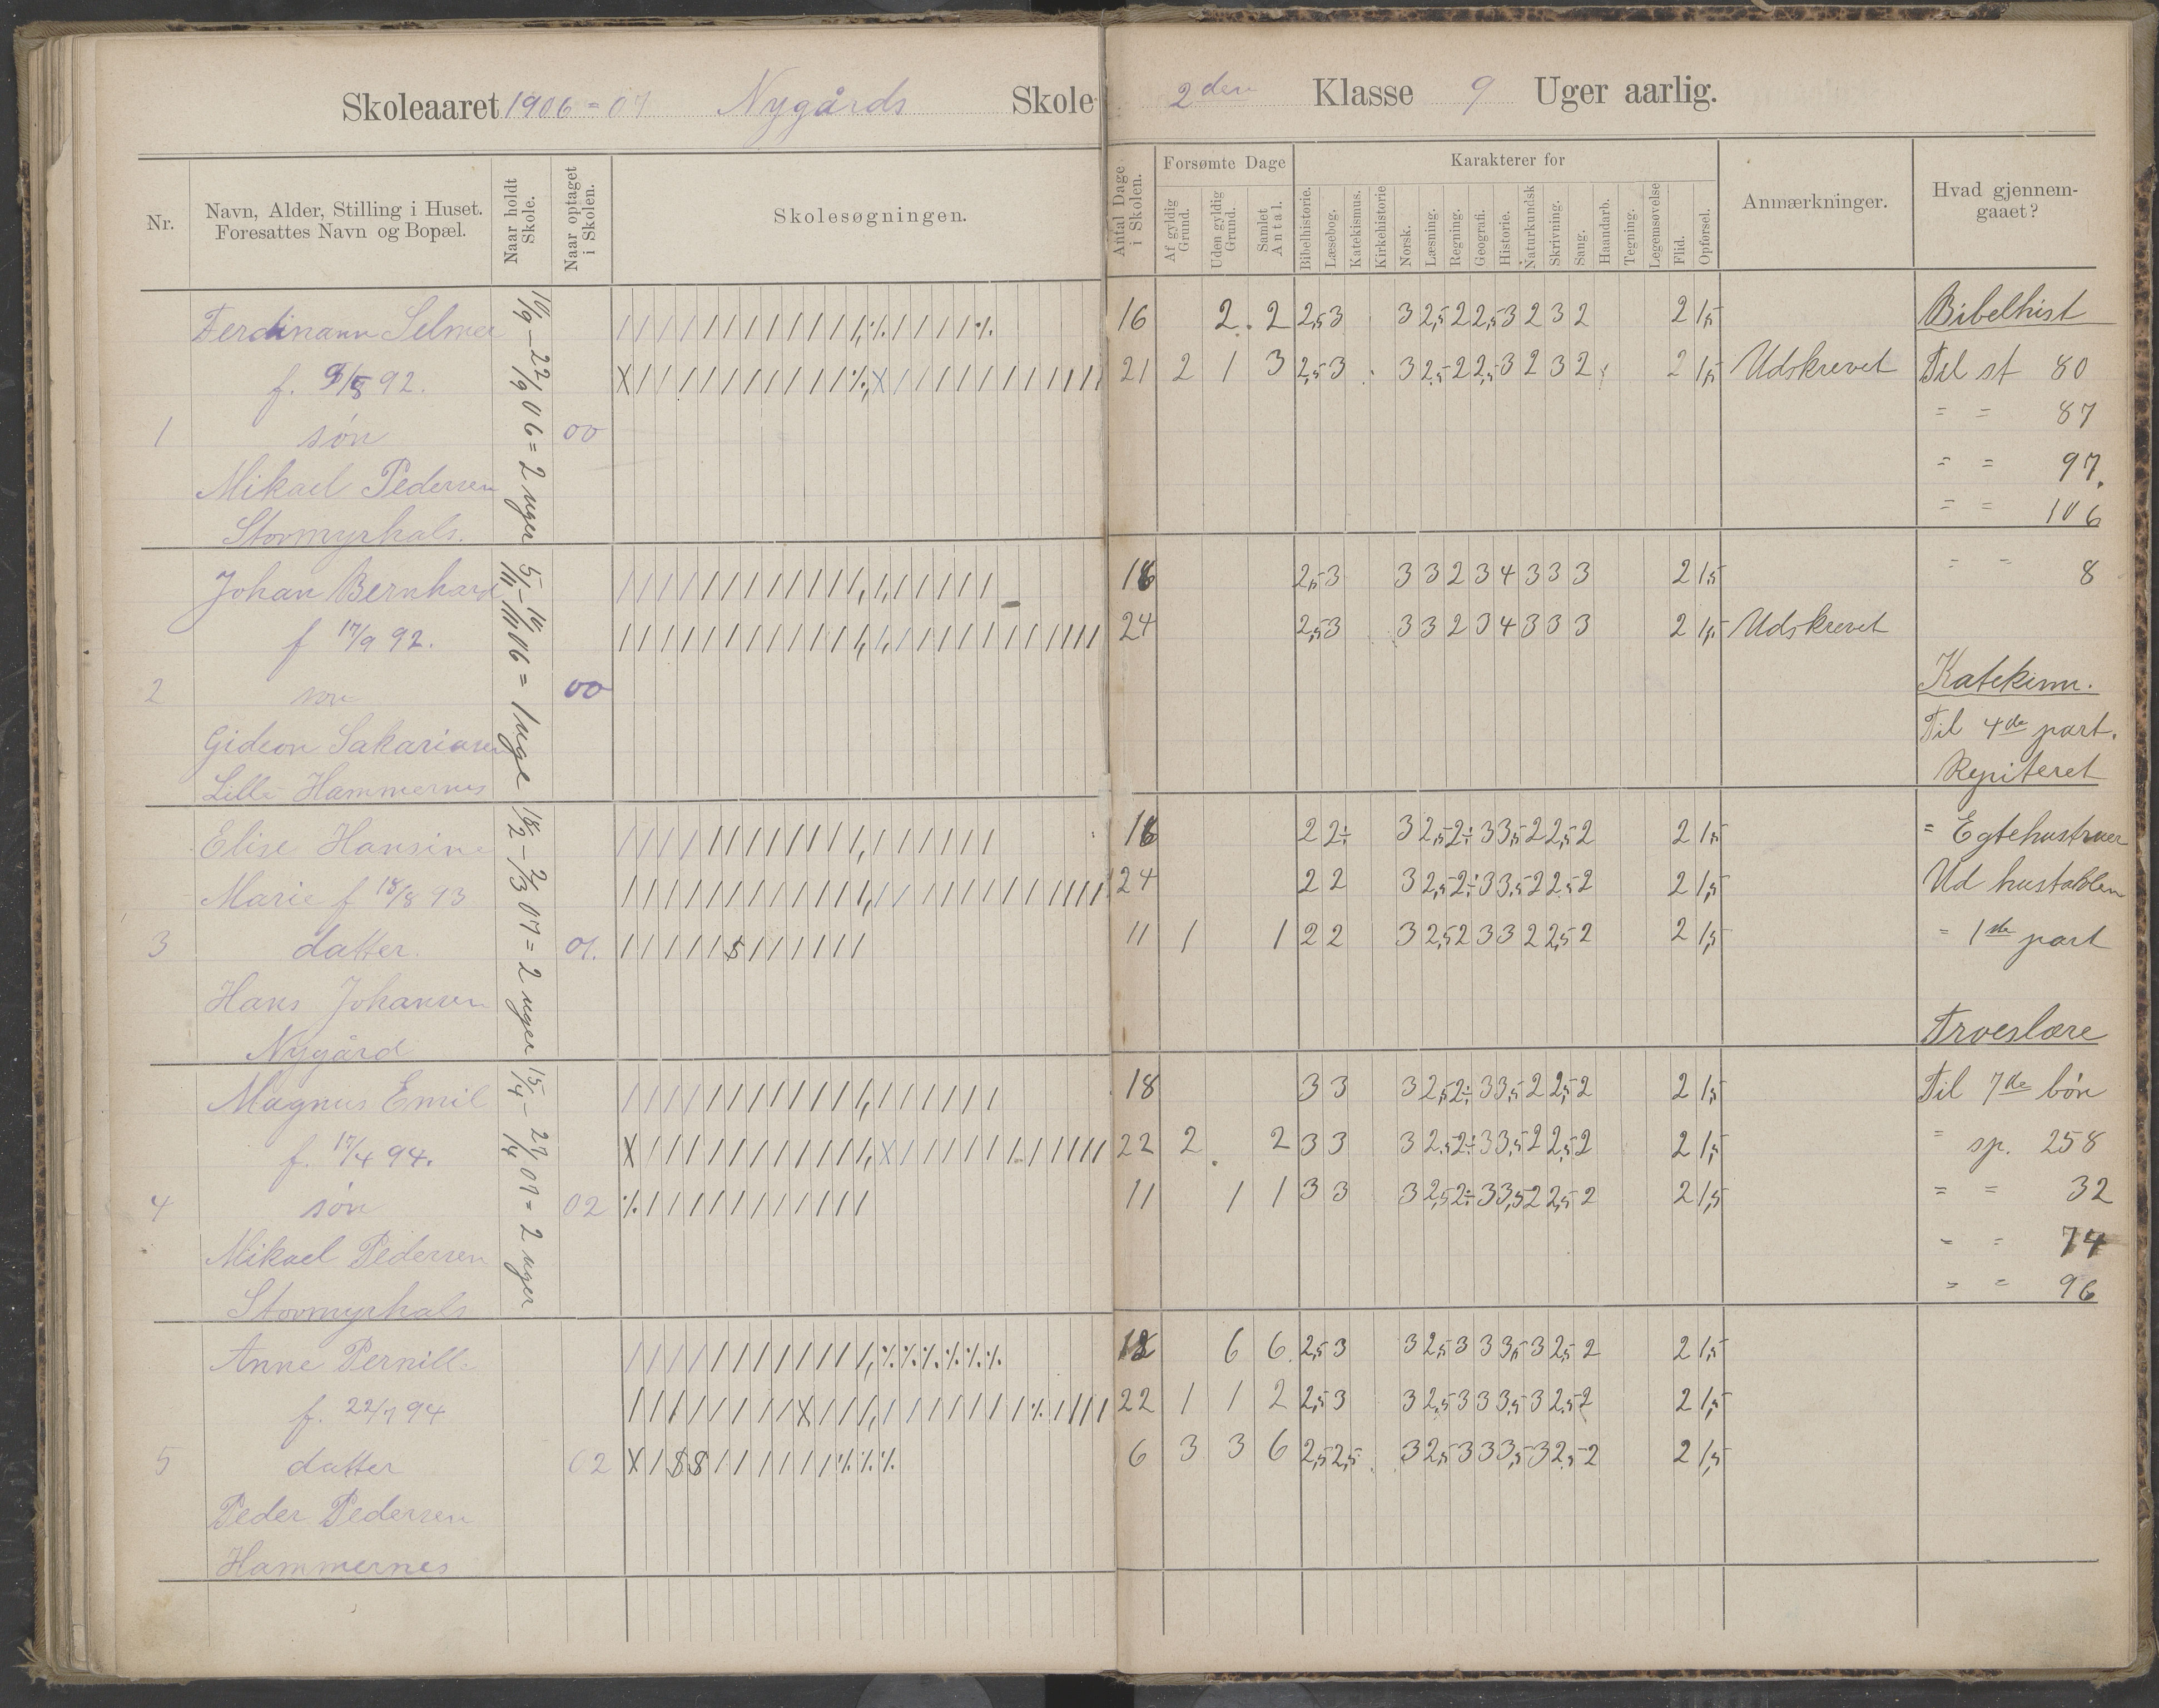 Skoleaaret 1906=07 Nygårds Skole 2den Klasse 9 Uger aarlig.
Nr.
Navn, Alder, Stilling i Huset.
Foresattes Navn og Bopæl.
Naar holdt Skole.
Naar optaget i Skolen.
Skolesøgningen.
Antal Dage i Skolen.
Forsømte Dage
Af gyldig Grund.
Uden gyldig Grund.
Samlet Antal.
Karakterer for
Bibelhistorie.
Læsebog.
Katekismus.
Kirkehistorie
Norsk.
Læsning.
Regning.
Geografi.
Historie.
Naturkundsk
Skrivning.
Sang.
Haandarb.
Tegning.
Legemsøvelse
Flid.
Opførsel.
Anmærkninger.
Hvad gjennem-
gaaet?
10/9 - 22/9 06 = 2 uger
5/11 - 10/11 06 = 1 uge
18/2 - 2/3 07 = 2 uger
15/4 - 27/4 07 = 2 uger
1
Ferdinann Selmer
f. 9/5 92.
søn
Mikael Pedersen
Stormyrhals.
00
16 2. 2 2,5 3 3 2,5 2 2,5 3 2 3 2 2 1,5
21 2 1 3 2,5 3 3 2,5 2 2,5 3 2 3 2 2 1,5 Udskrevet
2
Johan Bernhard
f 17/9 92.
søn
Gideon Sakariasen
Lille Hammernes
00
18 2,5 3 3 3 2 3 4 3 3 3 2 1,5
24 2,5 3 3 3 2 3 4 3 3 3 2 1,5 Udskrevet
3
Elise Hansine
Marie f 18/8 93
datter.
Hans Johansen
Nygård
01.
18 2 2÷ 3 2,5 2÷ 3 3,5 2 2,5 2 2 1,5
24 2 2 3 2,5 2÷ 3 3,5 2 2,5 2 2 1,5
11 1 1 2 2 3 2,5 2 3 3 2 2,5 2 2 1,5
4
Magnus Emil
f. 17/4 94.
søn
Mikael Pedersen
Stormyrhals
02
18 3 3 3 2,5 2÷ 3 3,5 2 2,5 2 2 1,5
22 2 2 3 3 3 2,5 2÷ 3 3,5 2 2,5 2 2 1,5
11 1 1 3 3 3 2,5 2÷ 3 3,5 2 2,5 2 2 1,5
5
Anne Pernille
f. 22/7 94
datter
Peder Pedersen
Hammernes
02
12 6 6 2,5 3 3 2,5 3 3 3,5 3 2,5 2 2 1,5
22 1 1 2 2,5 3 3 2,5 3 3 3,5 3 2,5 2 2 1,5
6 3 3 6 2,5 2,5 3 2,5 3 3 3,5 3 2,5 2 2 1,5
Bibelhist
Til st 80
= = 87
= = 97.
= = 106
= = 8
Katekism.
Til 4de part.
Repiteret
= Egtehustruer
Ud hustablen
= 1ste part
Troeslære
Til 7de bøn
= sp. 258
= = 32
= = 74
= = 96